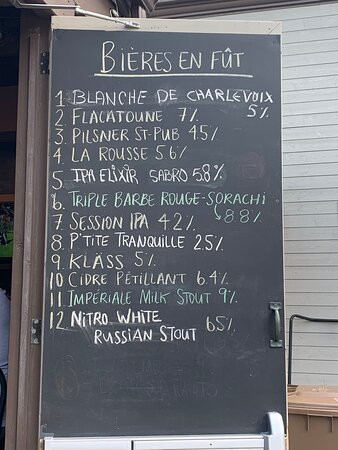 BIÈRES EN FÛT
1. BLANCHE DE CHARLEVOIX
5%
2. FLACATOUNE 7%
3. PILSNER ST-PUB 4.5%
4. LA ROUSSE 5.6%
5. IPA ELIXIR SABRO 5.8%
6. TRIPLE BARBE ROUGE-SORACHI
8.8%
7. SESSION IPA 4.2%
8. P'TITE TRANQUILLE 2.5%
9. KLÄSS 5%
10 CIDRE PÉTILLANT 6.4%
11 IMPÉRIALE MILK STOUT 9%
12. NITRO WHITE
RUSSIAN STOUT 6.5%